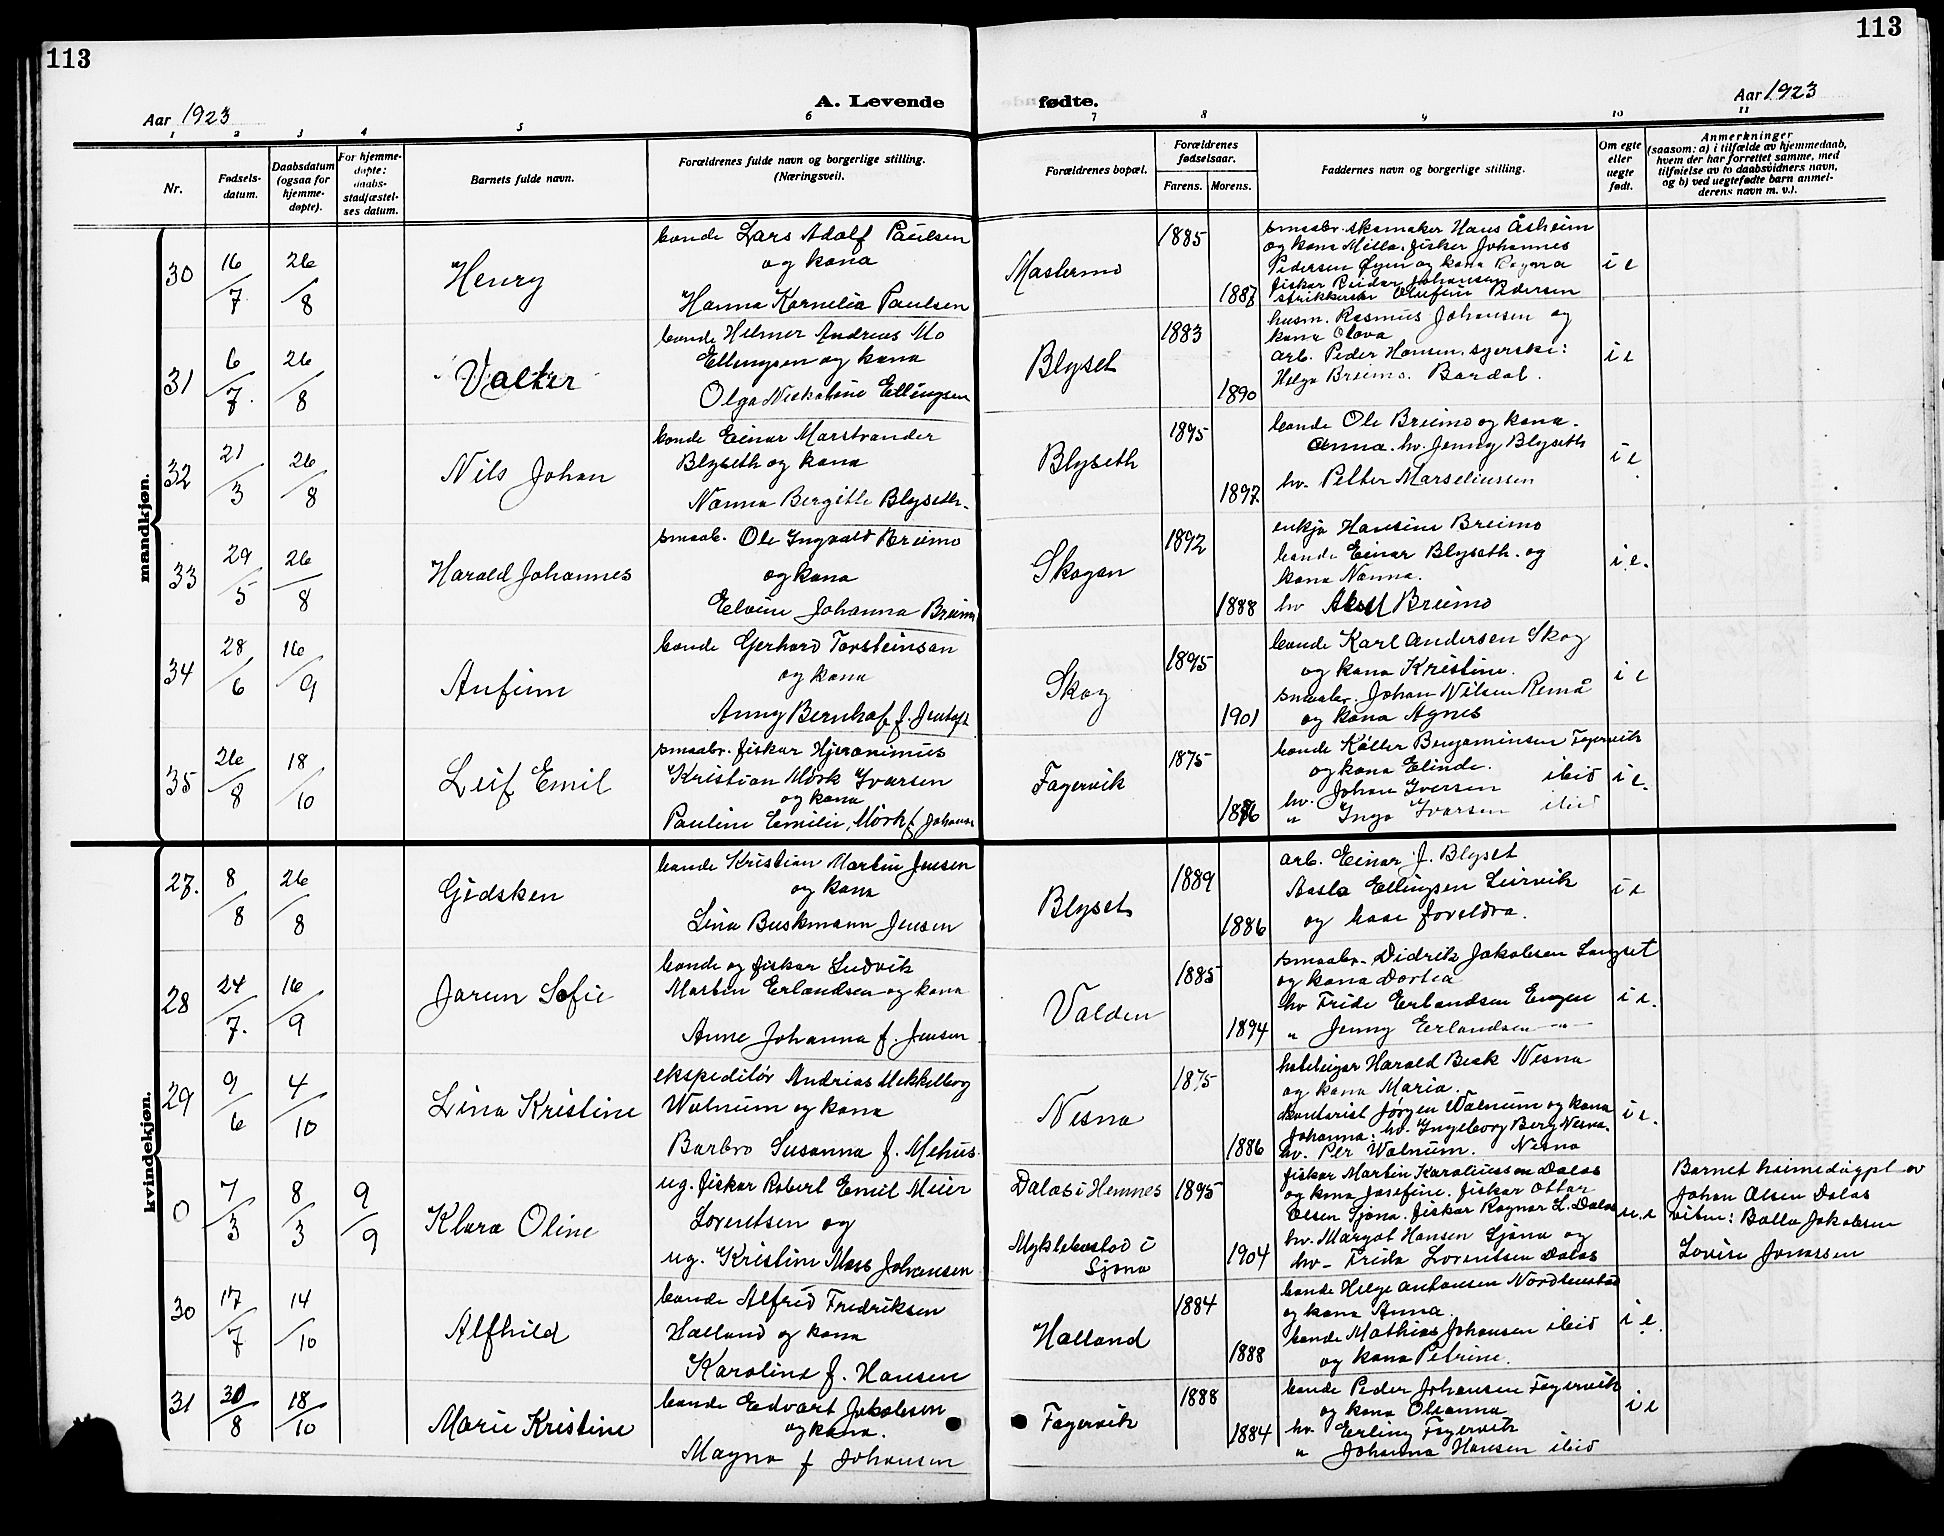 113
113
Aar 1923
A. Levende
fødte.
Aar 1923
1 2 3 4 5 6 7 8 9 10 11
Nr.
Fødsels-
datum.
Daabsdatum
(ogsaa for
hjemme-
døpte).
For hjemme-
døpte:
daabs-
stadfæstel-
ses datum.
Barnets fulde navn.
Forældrenes fulde navn og borgerlige stilling.
(Næringsvei).
Forældrenes bopæl.
Forældrenes
fødselsaar.
Farens. Morens.
Faddernes navn og borgerlige stilling.
Om egte
eller
uegte
født.
Anmerkninger
(saasom: a) i tilfælde av hjemmedaab,
hvem der har forrettet samme, med
tilføielse av to daabsvidners navn,
og b) ved uegtefødte barn anmel-
derens navn m. v.).
mandkjøn.
30
16/7
26/8
Henry
bonde Lars Adolf Paulsen
og kona
Hanna Kornelia Paulsen
Mastermo
1885
1887
smaabr. skomaker Hans Åsheim
og kona Milla. fisker Johannes
Pedersen Øyen og kona Ragna
fiskar Reidar Johansen
strikkerske Olufine Pedersen
i e
31
6/7
26/8
Valter
bonde Hilmer Andreas Mo
Ellingsen og kona
Olga Nickoline Ellingsen
Blyset
1883
1890
husm. Rasmus Johansen og
kona Olava
arb. Peder Hansen. syerske:
Helga Breimo. Bardal.
i e
32
21/3
26/8
Nils Johan
bonde Einar Marstrander
Blyseth og kona
Nanna Bergitte Blyseth.
Blyseth
1895
1897
bonde Ole Breimo og kona.
Anna. hv. Jenny Blyseth
hv. Petter Marseliussen
i e
33
29/5
26/8
Harald Johannes
smaab. Ole Ingvald Breimo
og kona
Elvine Johanna Breimo
Skogan
1892
1888
enkja Hansine Breimo
bonde Einar Blyseth. og
kona Nanna.
hv Aksel Breimo
i e.
34
28/6
16/9
Anfinn
bonde Gerhard Torsteinsan
og kona
Anny Bernhof f. Jentoft
Skog
1895
1901
bonde Karl Andersen Skog
og kona Kristine.
smaabr. Johan Nilsen Remå
og kona Agnes
i e
35
26/8
18/10
Leif Emil
smaabr. fiskar Hjeronimus
Kristian Mörk Ivarsen
og kona
Pauline Emilie Mörk f. Johans
Fagervik
1875
1876
bonde Köller Benjaminsen Fagervik
og kona Elinde.
hv. Johan Iversen ibid
" Inga Ivarsen ibid
i e.
kvindekjøn.
27.
8/8
26/8
Gidsken
bonde Kristian Martin Jensen
og kona
Lina Buskmann Jensen
Blyset
1889
1886
arb. Einar J. Blyset
Aasta Ellingsen Leirvik
og baae foreldra.
i e
28
24/7.
16/9
Jorun Sofie
bonde og fiskar Ludvik
Martin Erlandsen og kona
Anne Johanna f. Jensen
Valden
1885
1894
smaabr. Didrik Jakobsen Langset
og kona Dortea
hv Fride Erlandsen Engen
" Jenny Erlandsen - " -
i e.
29
9/6
4/10
Lina Kristine
ekspeditör Andrias Mekkelborg
Walnum og kona
Barbro Susanna f. Mehus
Nesna
1875
1886
hoteleigar Harald Beck Nesna
og kona Maria.
kontorist Jørgen Walnum og kona
Johanna. hv. Ingeborg Berg Nesna.
hv. Per Walnum. Nesna
i e.
0
7/3
8/3
9/9
Klara Oline
ug. fiskar Robert Emil Meier
Lorentsen og
ug. Kristine Mass Johansen
Dalas i Hemnes
Myklebostad i
Sjona
1895
1904
fiskar Martin Karoliussen Dalas
og kona Josefine. fiskar Ottar
Olsen Sjona. fiskar Ragnar L. Dalas
hv. Margot Hansen Sjona og
hv- Frida Lorentsen Dalas
u. e
Barnet heimedøypt av
Johan Olsen Dalas
vitne: Balla Jakobsen
Lovise Jonassen
30
17/7
14/10
Alfhild
bonde Alfred Fredriksen
Halland og kona
Karoline f. Hansen
Halland
1884
1888
bonde Helge Antonsen Nordbustad
og kona Anna.
bonde Mathias Johansen ibid
og kona Petrine.
i e.
31
30/8
18/10
Marie Kristine
bonde Edvart Jakobsen
og kona.
Magna f Johansen
Fagervik
1888
1884
bonde Peder Johansen Fagervik
og kona Oleanna
hv. Erling Fagervik
" Johanna Hansen ibid
i e